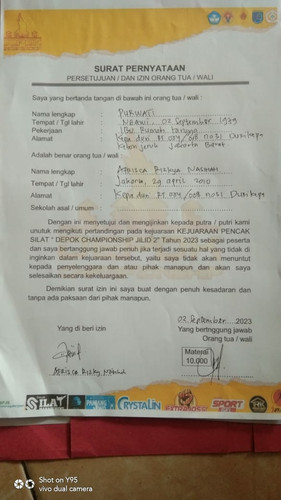 SURAT PERNYATAAN
PERSETUJUAN / DAN IZIN ORANG TUA / WALI
Saya yang bertanda tangan di bawah ini orang tua / wali :
Nama lengkap : PURWATI
Tempat / Tgl lahir : NGAWI, 02 September 1979
Pekerjaan : Ibu Rumah Tangga
Alamat : Kepa duri Rt 004/008 no31 Duri Kepa
Kebon jeruk Jakarta Barat
Adalah benar orang tua / wali :
Nama lengkap : Aprisca Rizkya
Tempat / Tgl lahir : Jakarta, 29 april 2010
Alamat : Kepa duri Rt 004/008 no31 Duri Kepa
Sekolah asal / umum :
Dengan ini menyetujui dan mengijinkan kepada putra / putri kami
unutuk mengikuti pertandingan pada kejuaraan KEJUARAAN PENCAK
SILAT " DEPOK CHAMPIONSHIP JILID 2" Tahun 2023 sebagai peserta
dan saya bertanggung jawab penuh jika terjadi suatu hal yang tidak di
inginkan dalam kejuaraan tersebut, yaitu saya tidak akan menuntut
kepada penyelenggara dan atau pihak manapun dan akan saya
selesaikan secara kekeluargaan.
Demikian surat izin ini saya buat dengan penuh kesadaran dan
tanpa ada paksaan dari pihak manapun,
02 September 2023
Yang di beri izin
Yang bertnggung jawab
Orang tua / wali
Materai
10.000
Aprisca Rizky
SILAT
CRYSTALIN
SPORT
Shot on Y95
vivo dual camera